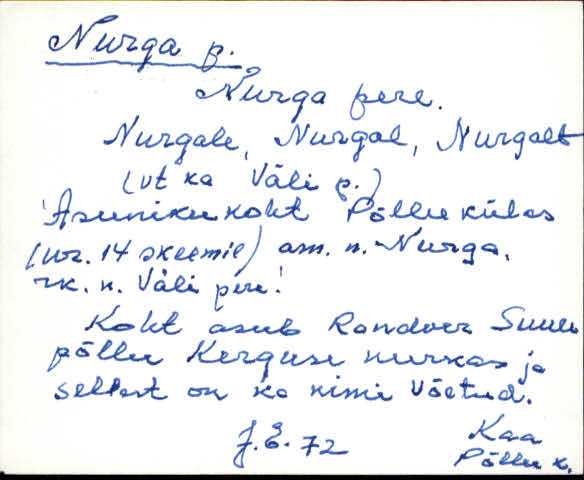 Nurga p.
Nurga pere.
Nurgale, Nurgal, Nurgalt
(vt ka Väli p.)
Asunikukoht Põllu külas
(nr. 14 skeemil) am. n. Nurga,
rk. n. Väli pere!
Koht asub Randvere Suure
põllu Kerguse nurkas ja
sellest on ka nimi võetud.
J.E. 72
Kaa
Põllu k.